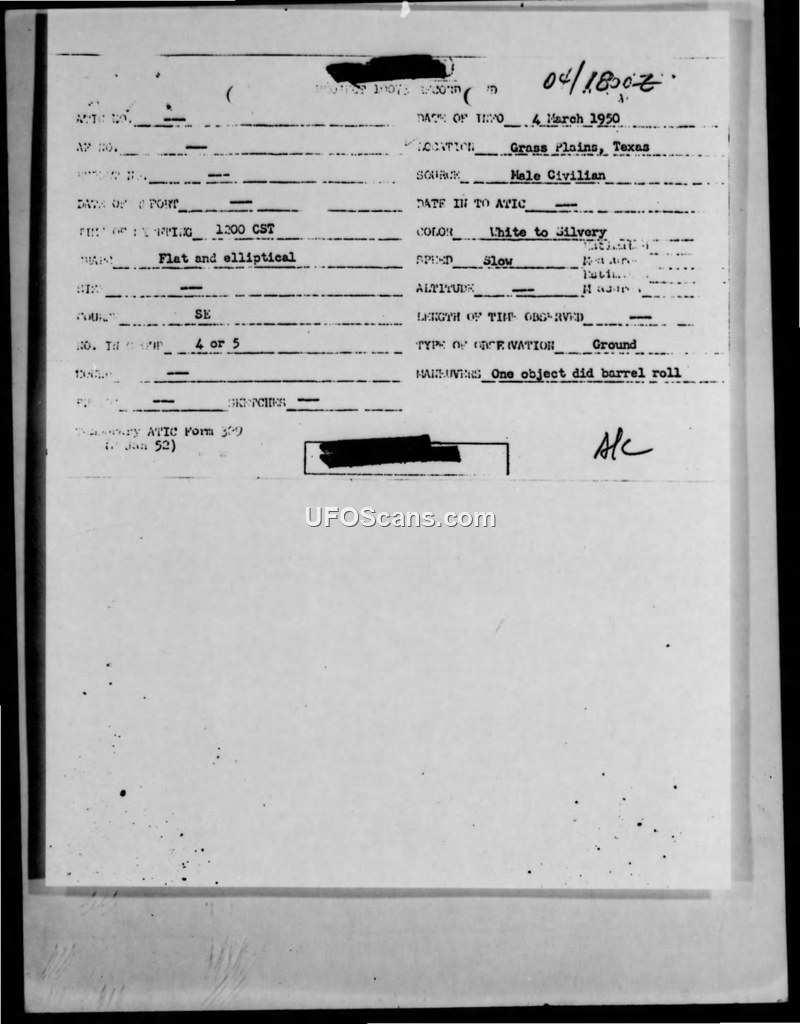 04/1800Z
DATE OF INFO 4 March 1950
AF NO. —
LOCATION Grass Plains, Texas
SOURCE Male Civilian
DATE OF REPORT —
DATE IN TO ATIC —
TIME OF SIGHTING 1200 CST
COLOR White to Silvery
SHAPE Flat and elliptical
SPEED Slow
SIZE —
ALTITUDE —
COURSE SE
LENGTH OF TIME OBSERVED —
NO. IN GROUP 4 or 5
TYPE OF OBSERVATION Ground
—
MANEUVERS One object did barrel roll
— SKETCHES —
Temporary ATIC Form 329
(2 Jan 52)
A/C
UFOScans.com